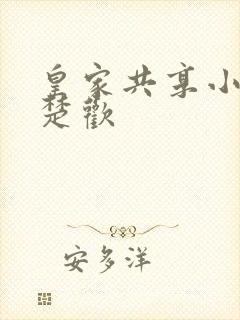 皇家共享小
楚歡
安多洋